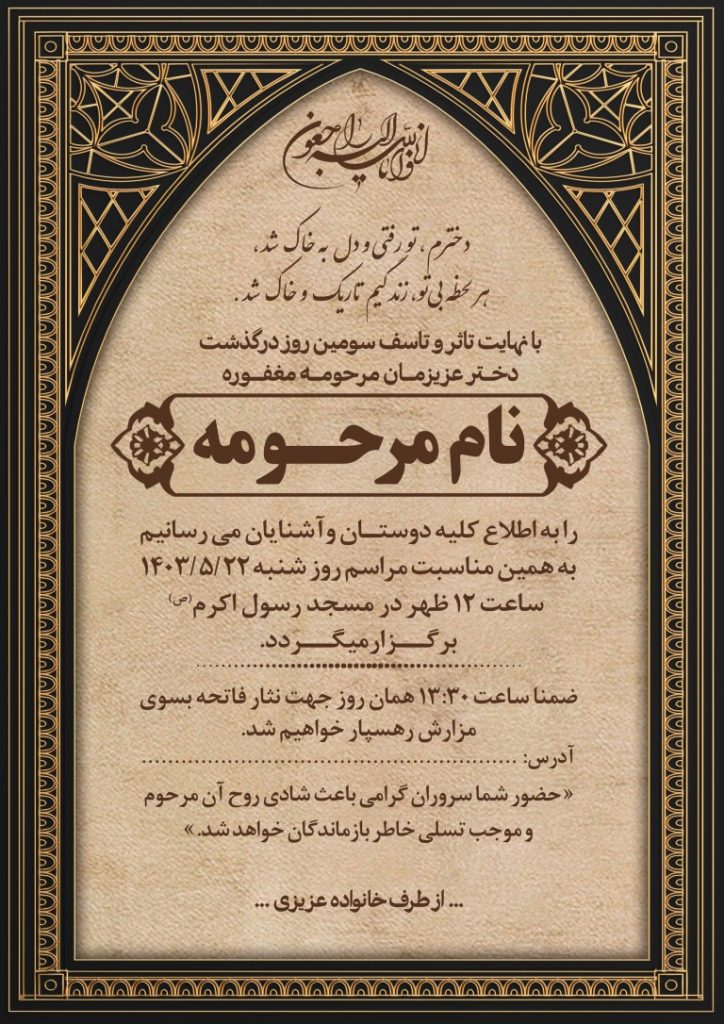 انا لله و انا الیه راجعون
دخترم، تو رفتی و دل به خاک شد،
هر لحظه بی‌تو، زندگیم تاریک و خاک شد.
با نهایت تاثر و تاسف سومین روز درگذشت
دختر عزیزمان مرحومه مغفوره
نام مرحومه
را به اطلاع کلیه دوستان و آشنایان می رسانیم
به همین مناسبت مراسم روز شنبه ۱۴۰۳/۵/۲۲
ساعت ۱۲ ظهر در مسجد رسول اکرم (ص)
برگزار میگردد.
ضمنا ساعت ۱۳:۳۰ همان روز جهت نثار فاتحه بسوی
مزارش رهسپار خواهیم شد.
آدرس: ............................................................
«حضور شما سروران گرامی باعث شادی روح آن مرحوم
و موجب تسلی خاطر بازماندگان خواهد شد.»
... از طرف خانواده عزیزی ...